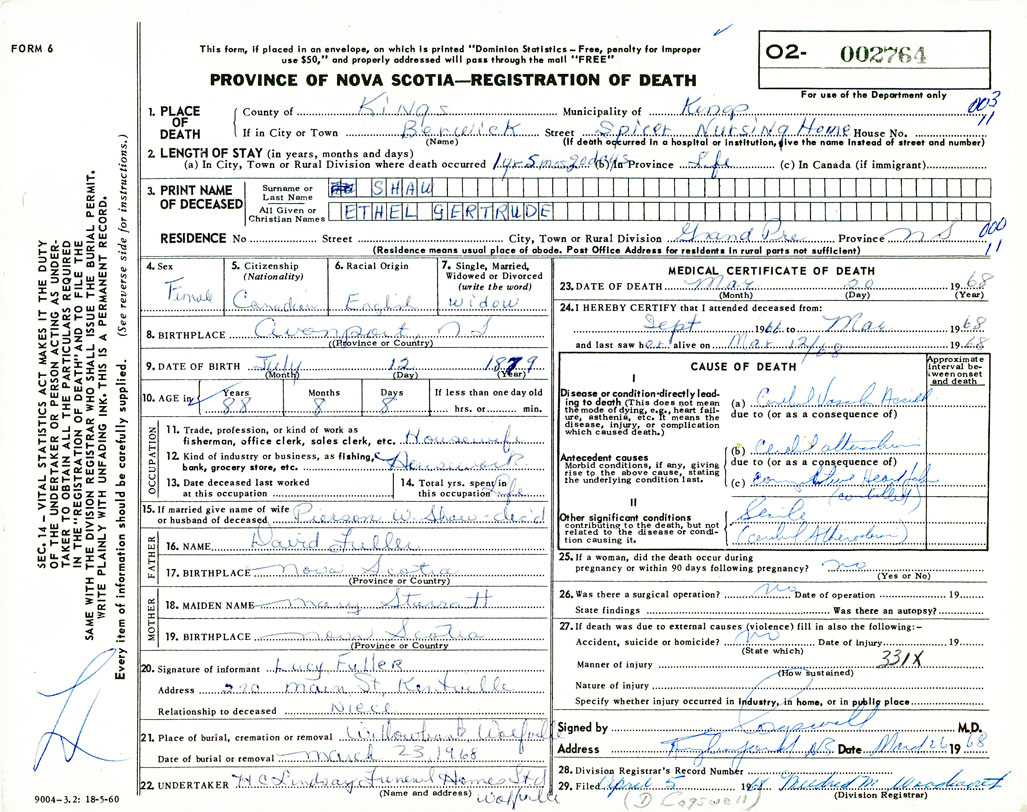 FORM 6
This form, if placed in an envelope, on which is printed "Dominion Statistics – Free, penalty for improper
use $50," and properly addressed will pass through the mail "FREE"
PROVINCE OF NOVA SCOTIA—REGISTRATION OF DEATH
O2- 002764
For use of the Department only
003
11
1. PLACE OF DEATH County of Kings Municipality of Kings
If in City or Town Berwick Street Spicer Nursing Home House No.
(Name) (If death occurred in a hospital or institution, give the name instead of street and number)
2. LENGTH OF STAY (in years, months and days)
(a) In City, Town or Rural Division where death occurred 1 yr 5 mos 20 days (b) In Province Life (c) In Canada (if immigrant)
3. PRINT NAME OF DECEASED Surname or Last Name SHAW
All Given or Christian Names ETHEL GERTRUDE
RESIDENCE No Street City, Town or Rural Division Grand Pre Province NS
000
11
(Residence means usual place of abode. Post Office Address for residents in rural parts not sufficient)
4. Sex Female
5. Citizenship (Nationality) Canadian
6. Racial Origin English
7. Single, Married, Widowed or Divorced (write the word) Widow
8. BIRTHPLACE Avonport, N S
(Province or Country)
9. DATE OF BIRTH July 12 1879
(Month) (Day) (Year)
10. AGE in Years 88 Months 8 Days 8 If less than one day old hrs. or min.
OCCUPATION
11. Trade, profession, or kind of work as fisherman, office clerk, sales clerk, etc. Housewife
12. Kind of industry or business, as fishing, bank, grocery store, etc. Housework
13. Date deceased last worked at this occupation
14. Total yrs. spent in this occupation Life
15. If married give name of wife or husband of deceased Pierson W. Shaw - dec'd
FATHER
16. NAME David Fuller
17. BIRTHPLACE Nova Scotia
(Province or Country)
MOTHER
18. MAIDEN NAME Mary Starratt
19. BIRTHPLACE Nova Scotia
(Province or Country
20. Signature of informant Lucy Fuller
Address 220 Main St. Kentville
Relationship to deceased Niece
21. Place of burial, cremation or removal Willowbank Wolfville
Date of burial or removal March 23, 1968
22. UNDERTAKER H C Lindsay Funeral Homes Ltd
(Name and address) Wolfville
MEDICAL CERTIFICATE OF DEATH
23. DATE OF DEATH Mar 20 1968
(Month) (Day) (Year)
24. I HEREBY CERTIFY that I attended deceased from:
Sept 1966 to Mar 1968
and last saw her alive on Mar 12/68 1968
CAUSE OF DEATH
Approximate interval between onset and death
I
Disease or condition directly leading to death (This does not mean the mode of dying, e.g., heart failure, asthenia, etc. It means the disease, injury, or complication which caused death.)
(a) Cerebral Vascular
due to (or as a consequence of)
Antecedent causes
Morbid conditions, if any, giving rise to the above cause, stating the underlying condition last.
(b) Cerebral
due to (or as a consequence of)
(c) Congestive Heart
(controlled)
II
Other significant conditions
contributing to the death, but not related to the disease or condition causing it.
Senile
25. If a woman, did the death occur during
pregnancy or within 90 days following pregnancy? no
(Yes or No)
26. Was there a surgical operation? no Date of operation 19
State findings Was there an autopsy?
27. If death was due to external causes (violence) fill in also the following:–
Accident, suicide or homicide? no Date of injury 19
(State which)
331X
Manner of injury
(How sustained)
Nature of injury
Specify whether injury occurred in industry, in home, or in public place
Signed by Cogswell M.D.
Address Date March 26 1968
28. Division Registrar's Record Number
29. Filed April 5 1968 Mildred M.
(D Cogswell) (Division Registrar)
SEC. 14 – VITAL STATISTICS ACT MAKES IT THE DUTY
OF THE UNDERTAKER OR PERSON ACTING AS UNDER-
TAKER TO OBTAIN ALL THE PARTICULARS REQUIRED
IN THE "REGISTRATION OF DEATH" AND TO FILE THE
SAME WITH THE DIVISION REGISTRAR WHO SHALL ISSUE THE BURIAL PERMIT.
WRITE PLAINLY WITH UNFADING INK. THIS IS A PERMANENT RECORD.
Every item of information should be carefully supplied. (See reverse side for instructions.)
9004–3.2: 18-5-60